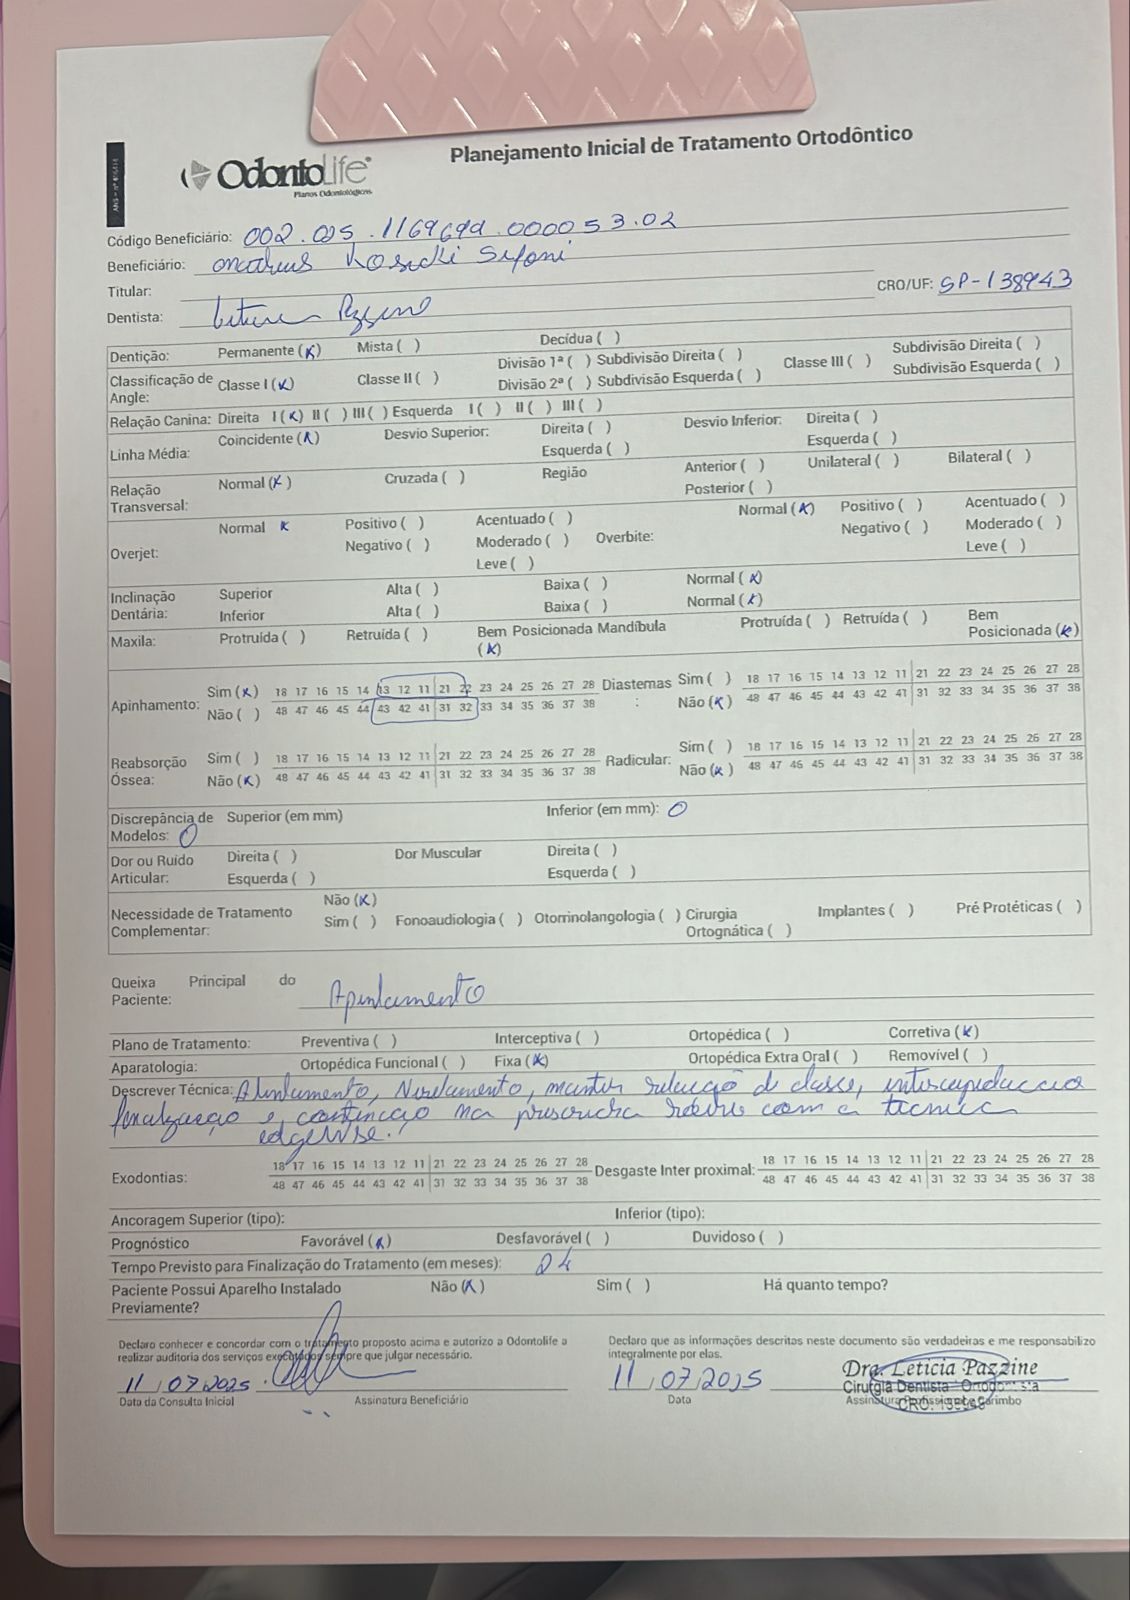 Planejamento Inicial de Tratamento Ortodôntico
OdontoLife
Planos Odontológicos
Código Beneficiário: 002.025.1169699.000053.02
Beneficiário:
Titular:
CRO/UF: SP-138943
Dentista:
Dentição: Permanente (x) Mista ( ) Decídua ( )
Classificação de Angle: Classe I (x) Classe II ( ) Divisão 1ª ( ) Subdivisão Direita ( ) Divisão 2ª ( ) Subdivisão Esquerda ( ) Classe III ( ) Subdivisão Direita ( ) Subdivisão Esquerda ( )
Relação Canina: Direita I (x) II ( ) III ( ) Esquerda I ( ) II ( ) III ( )
Linha Média: Coincidente (x) Desvio Superior: Direita ( ) Esquerda ( ) Desvio Inferior: Direita ( ) Esquerda ( )
Relação Transversal: Normal (x) Cruzada ( ) Região Anterior ( ) Posterior ( ) Unilateral ( ) Bilateral ( )
Overjet: Normal x Positivo ( ) Negativo ( ) Acentuado ( ) Moderado ( ) Leve ( ) Overbite: Normal (x) Positivo ( ) Negativo ( ) Acentuado ( ) Moderado ( ) Leve ( )
Inclinação Dentária: Superior Alta ( ) Baixa ( ) Normal (x)
Inferior Alta ( ) Baixa ( ) Normal (x)
Maxila: Protruída ( ) Retruída ( ) Bem Posicionada (x) Mandíbula Protruída ( ) Retruída ( ) Bem Posicionada (x)
Apinhamento: Sim (x) 18 17 16 15 14 13 12 11 21 22 23 24 25 26 27 28 Diastemas: Sim ( ) 18 17 16 15 14 13 12 11 21 22 23 24 25 26 27 28
Não ( ) 48 47 46 45 44 43 42 41 31 32 33 34 35 36 37 38 Não (x) 48 47 46 45 44 43 42 41 31 32 33 34 35 36 37 38
Reabsorção Óssea: Sim ( ) 18 17 16 15 14 13 12 11 21 22 23 24 25 26 27 28 Radicular: Sim ( ) 18 17 16 15 14 13 12 11 21 22 23 24 25 26 27 28
Não (x) 48 47 46 45 44 43 42 41 31 32 33 34 35 36 37 38 Não (x) 48 47 46 45 44 43 42 41 31 32 33 34 35 36 37 38
Discrepância de Modelos: 0 Superior (em mm) Inferior (em mm): 0
Dor ou Ruído Articular: Direita ( ) Esquerda ( ) Dor Muscular Direita ( ) Esquerda ( )
Necessidade de Tratamento Complementar: Não (x) Sim ( ) Fonoaudiologia ( ) Otorrinolangologia ( ) Cirurgia Ortognática ( ) Implantes ( ) Pré Protéticas ( )
Queixa Principal do Paciente: Apinhamento
Plano de Tratamento: Preventiva ( ) Interceptiva ( ) Ortopédica ( ) Corretiva (x)
Aparatologia: Ortopédica Funcional ( ) Fixa (x) Ortopédica Extra Oral ( ) Removível ( )
Descrever Técnica: Alinhamento, Nivelamento, manter relação de classe, intercuspidação
finalização e contenção na prescrição com a técnica
edgewise.
Exodontias: 18 17 16 15 14 13 12 11 21 22 23 24 25 26 27 28 Desgaste Inter proximal: 18 17 16 15 14 13 12 11 21 22 23 24 25 26 27 28
48 47 46 45 44 43 42 41 31 32 33 34 35 36 37 38 48 47 46 45 44 43 42 41 31 32 33 34 35 36 37 38
Ancoragem Superior (tipo): Inferior (tipo):
Prognóstico Favorável (x) Desfavorável ( ) Duvidoso ( )
Tempo Previsto para Finalização do Tratamento (em meses): 24
Paciente Possui Aparelho Instalado Previamente? Não (x) Sim ( ) Há quanto tempo?
Declaro conhecer e concordar com o tratamento proposto acima e autorizo a Odontolife a
realizar auditoria dos serviços executados sempre que julgar necessário.
11/07/2025
Data da Consulta Inicial Assinatura Beneficiário
Declaro que as informações descritas neste documento são verdadeiras e me responsabilizo
integralmente por elas.
11/07/2025
Dra. Leticia Pazzine
Cirurgiã Dentista - Ortodontista
Data Assinatura Profissional e Carimbo